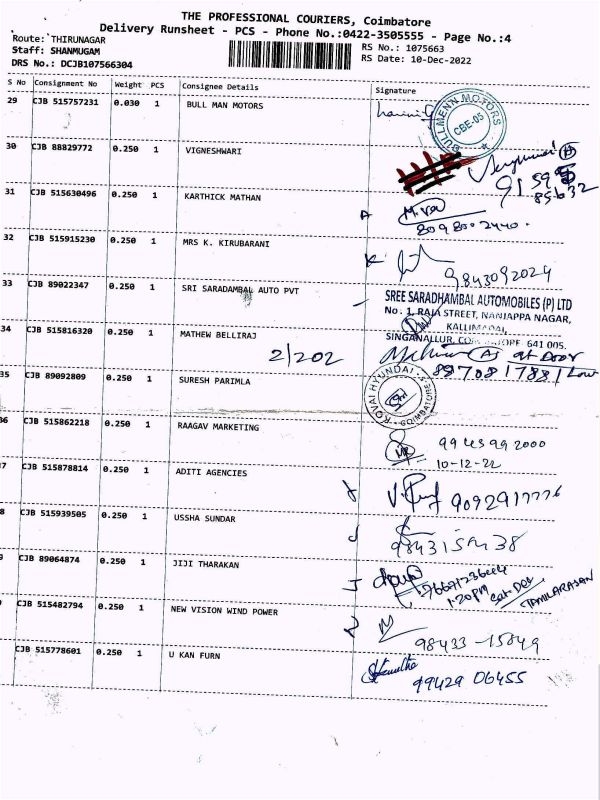 THE PROFESSIONAL COURIERS, Coimbatore
Delivery Runsheet - PCS - Phone No.:0422-3505555 - Page No.:4
Route: THIRUNAGAR
Staff: SHANMUGAM
DRS No.: DCJB107566304
RS No.: 1075663
RS Date: 10-Dec-2022
S No Consignment No Weight PCS Consignee Details Signature
29 CJB 515757231 0.030 1 BULL MAN MOTORS
BULLMENN MOTORS
CBE-05
30 CJB 88829772 0.250 1 VIGNESHWARI
31 CJB 515630496 0.250 1 KARTHICK MATHAN
8098002440.
32 CJB 515915230 0.250 1 MRS K. KIRUBARANI
9843092024
33 CJB 89022347 0.250 1 SRI SARADAMBAL AUTO PVT
SREE SARADHAMBAL AUTOMOBILES (P) LTD
No. 1, RAJA STREET, NANJAPPA NAGAR,
KALLIMADAI,
SINGANALLUR, 641 005.
34 CJB 515816320 0.250 1 MATHEW BELLIRAJ
2/202
at Door
35 CJB 89092809 0.250 1 SURESH PARIMLA
KOVAI HYUNDAI
COIMBATORE
36 CJB 515862218 0.250 1 RAAGAV MARKETING
99 45 99 2000
10-12-22
7 CJB 515878814 0.250 1 ADITI AGENCIES
8 CJB 515939505 0.250 1 USSHA SUNDAR
9 CJB 89064874 0.250 1 JIJI THARAKAN
1.20pm
TAMILARASAN
CJB 515482794 0.250 1 NEW VISION WIND POWER
98433-15849
CJB 515778601 0.250 1 U KAN FURN
99429 06455